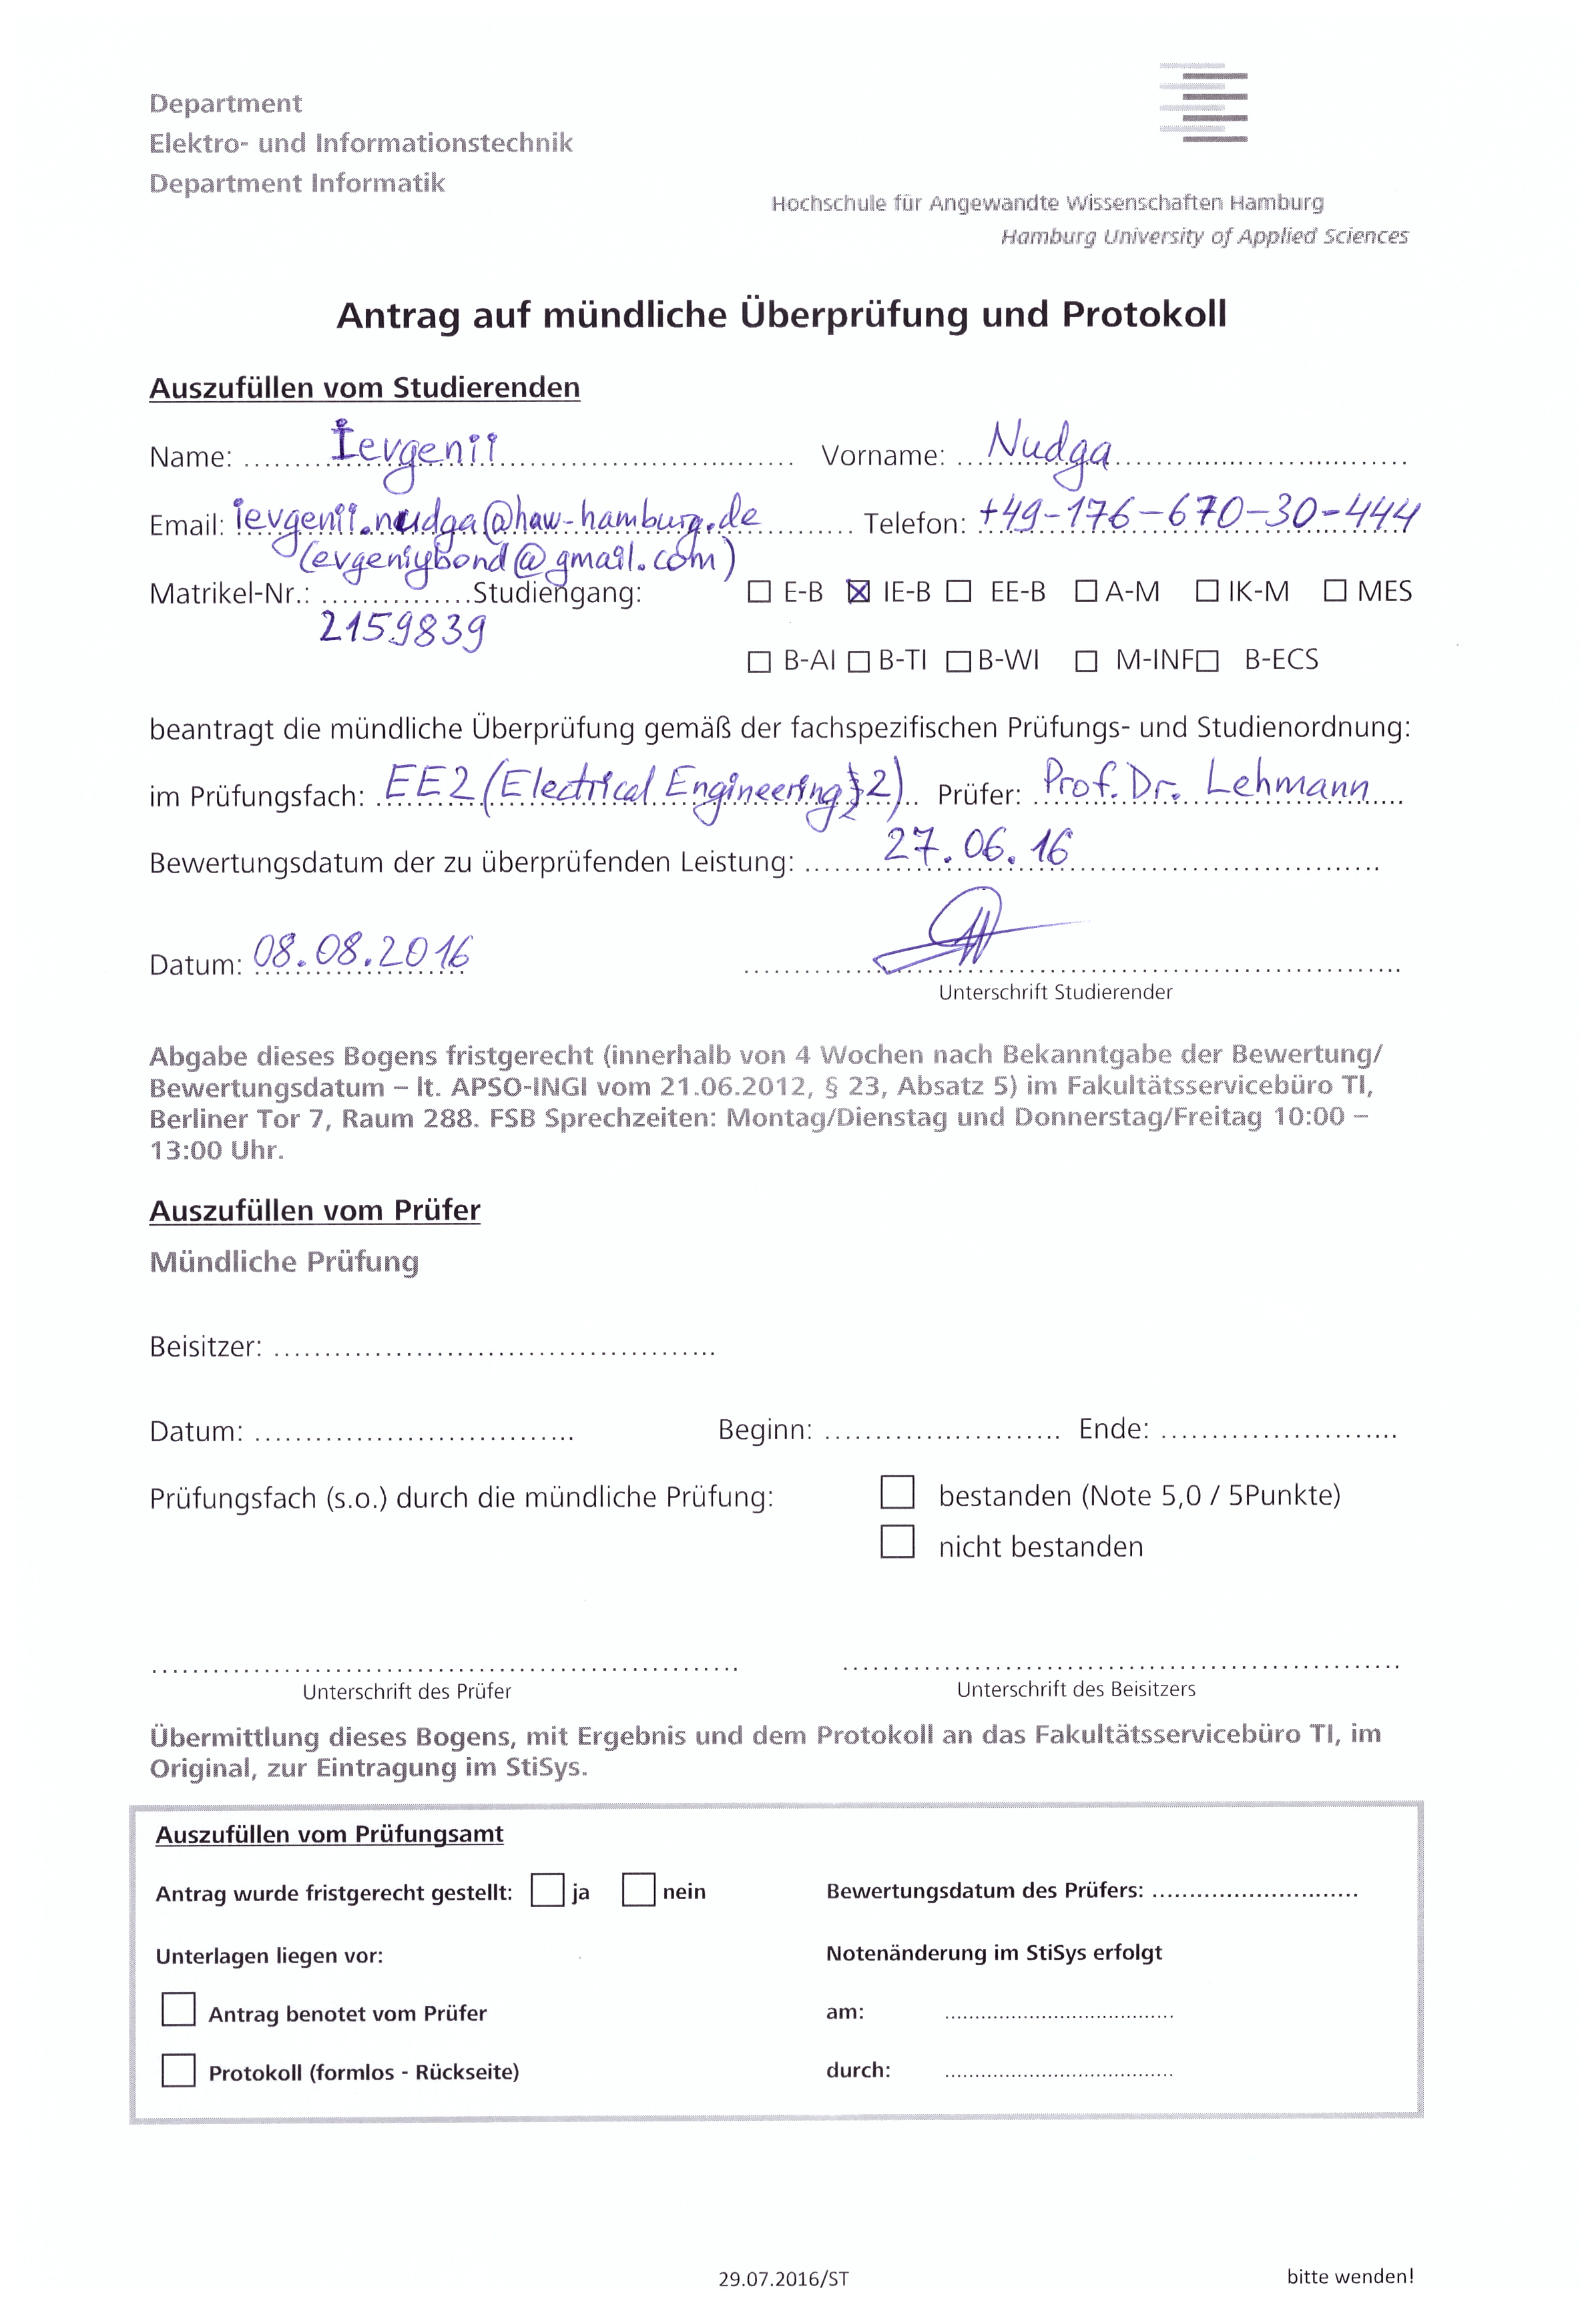 Department
Elektro- und Informationstechnik
Department Informatik
Hochschule für Angewandte Wissenschaften Hamburg
Hamburg University of Applied Sciences
Antrag auf mündliche Überprüfung und Protokoll
Auszufüllen vom Studierenden
Name: Ievgenii Vorname: Nudga
Email: ievgenii.nudga@haw-hamburg.de Telefon: +49-176-670-30-444
(evgeniybond@gmail.com)
Matrikel-Nr.: Studiengang: ☐ E-B ☒ IE-B ☐ EE-B ☐ A-M ☐ IK-M ☐ MES
2159839
☐ B-AI ☐ B-TI ☐ B-WI ☐ M-INF ☐ B-ECS
beantragt die mündliche Überprüfung gemäß der fachspezifischen Prüfungs- und Studienordnung:
im Prüfungsfach: EE2 (Electrical Engineering 2) Prüfer: Prof. Dr. Lehmann
Bewertungsdatum der zu überprüfenden Leistung: 27.06.16
Datum: 08.08.2016
Unterschrift Studierender
Abgabe dieses Bogens fristgerecht (innerhalb von 4 Wochen nach Bekanntgabe der Bewertung/
Bewertungsdatum – lt. APSO-INGI vom 21.06.2012, § 23, Absatz 5) im Fakultätsservicebüro TI,
Berliner Tor 7, Raum 288. FSB Sprechzeiten: Montag/Dienstag und Donnerstag/Freitag 10:00 –
13:00 Uhr.
Auszufüllen vom Prüfer
Mündliche Prüfung
Beisitzer:
Datum: Beginn: Ende:
Prüfungsfach (s.o.) durch die mündliche Prüfung: ☐ bestanden (Note 5,0 / 5Punkte)
☐ nicht bestanden
Unterschrift des Prüfer Unterschrift des Beisitzers
Übermittlung dieses Bogens, mit Ergebnis und dem Protokoll an das Fakultätsservicebüro TI, im
Original, zur Eintragung im StiSys.
Auszufüllen vom Prüfungsamt
Antrag wurde fristgerecht gestellt: ☐ ja ☐ nein Bewertungsdatum des Prüfers:
Unterlagen liegen vor: Notenänderung im StiSys erfolgt
☐ Antrag benotet vom Prüfer am:
☐ Protokoll (formlos - Rückseite) durch:
29.07.2016/ST bitte wenden!